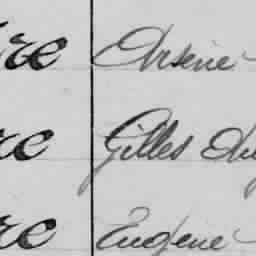 re Arsène
re Gilles Au
re Eugene